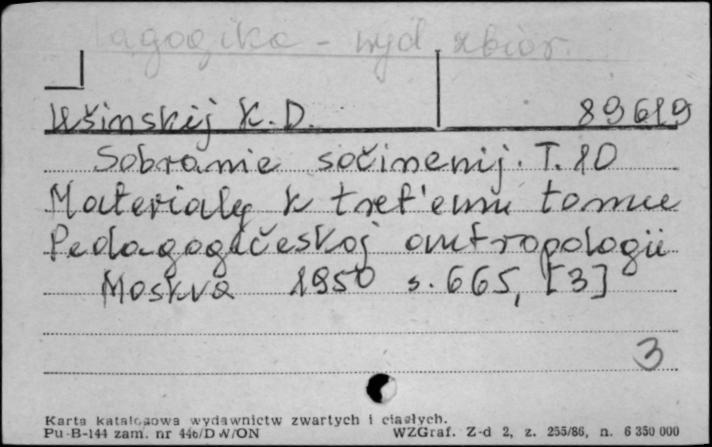 agogika - wyd zbior.
Ušinskij K. D. 89619
Sobranie sočinenij. T. 10
Materialy k tret'emu tomu
Pedagogičeskoj antropologii
Moskva 1950 s. 665, [3]
3
Karta katalogowa wydawnictw zwartych i ciągłych.
Pu-B-144 zam. nr 446/DW/ON WZGraf. Z-d 2, z. 255/86, n. 6 350 000